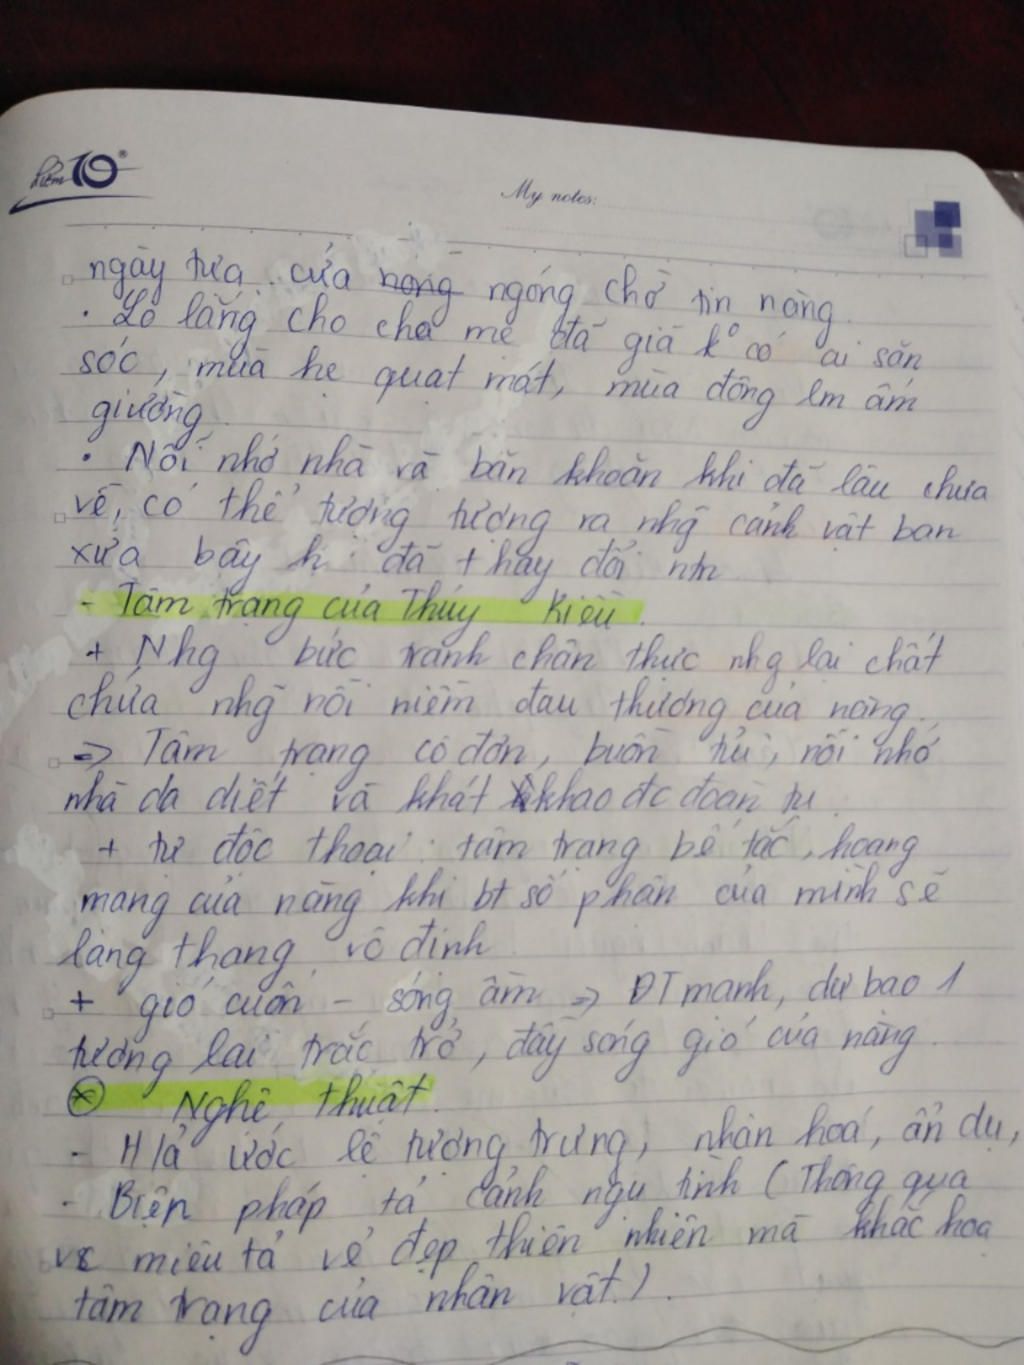 điểm 10
My notes:
ngày tựa cửa nong ngóng chờ tin nàng.
· Lo lắng cho cha mẹ đã già k° có ai săn
sóc, mùa hè quạt mát, mùa đông lm ấm
giường
· Nỗi nhớ nhà và băn khoăn khi đã lâu chưa
về, có thể tưởng tượng ra nhg̃ cảnh vật ban
xưa bây h đã thay đổi ntn
- Tâm trạng của Thúy Kiều.
+ Nhg bức tranh chân thực nhg lại chất
chứa nhg̃ nỗi niềm đau thương của nàng.
=> Tâm trạng cô đơn, buồn tủi, nỗi nhớ
nhà da diết và khát khao đc đoàn tụ
+ tự độc thoại: tâm trạng bế tắc, hoang
mang của nàng khi bt số phận của mình sẽ
lang thang, vô định
+ gió cuốn - sóng ầm => ĐT mạnh, dự báo 1
tương lai trắc trở, đầy sóng gió của nàng.
* Nghệ thuật.
- H/ả ước lệ tượng trưng, nhân hoá, ẩn dụ,
- Biện pháp tả cảnh ngụ tình (Thông qua
vc miêu tả vẻ đẹp thiên nhiên mà khắc hoạ
tâm trạng của nhân vật.).